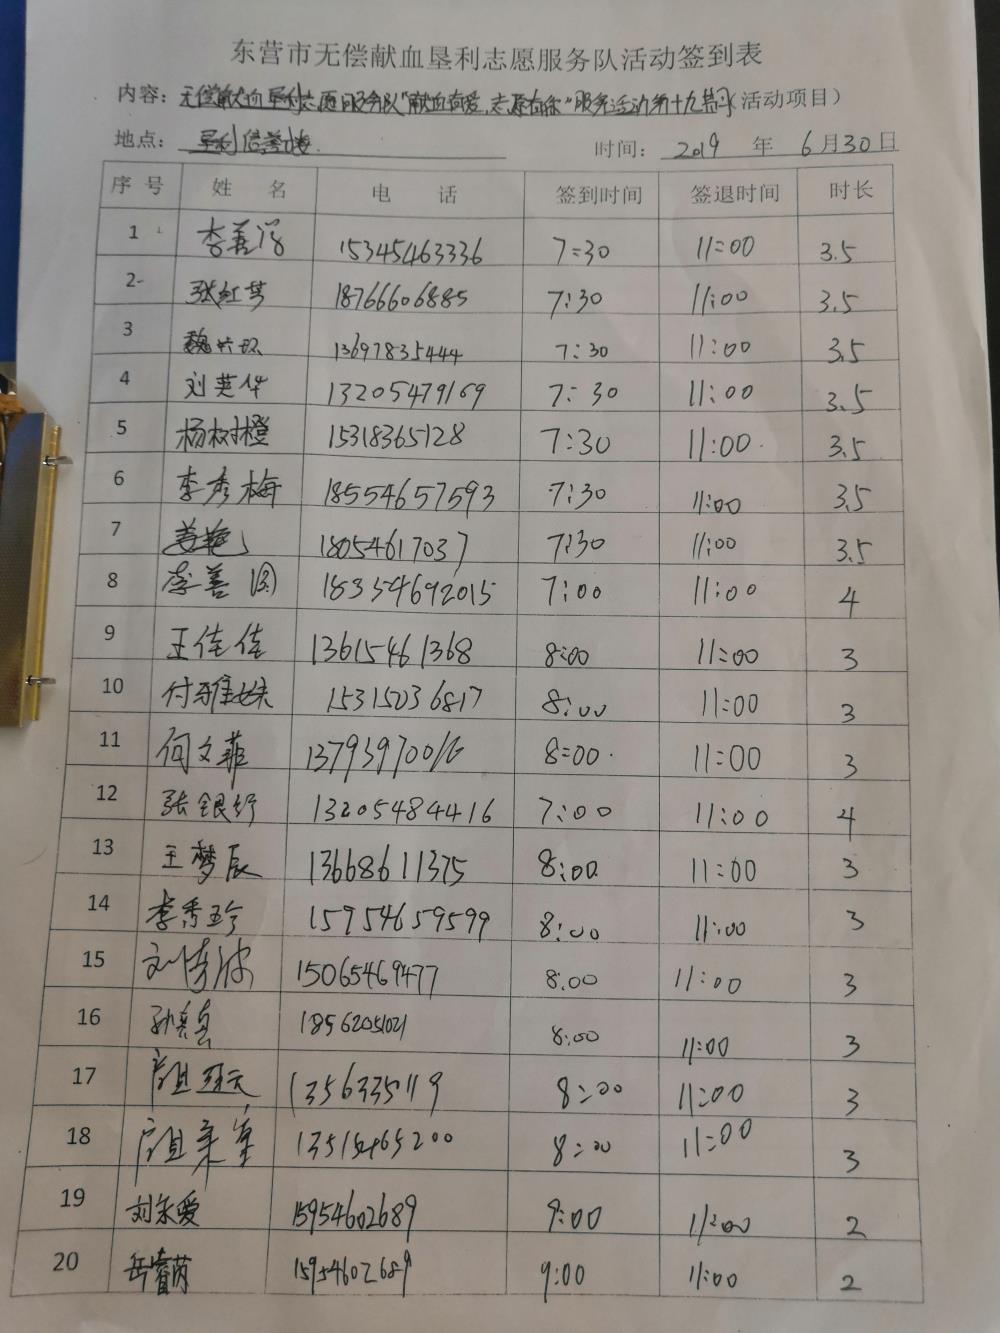 东营市无偿献血垦利志愿服务队活动签到表
内容：无偿献血垦利志愿服务队“献血有爱，志愿有你”服务活动第十九期（活动项目）
地点：垦利信誉楼 时间：2019 年 6月30日
序号 姓名 电话 签到时间 签退时间 时长
1 李善 15345463336 7:30 11:00 3.5
2 张红芳 18766606885 7:30 11:00 3.5
3 魏 13697835444 7:30 11:00 3.5
4 刘英华 13205479169 7:30 11:00 3.5
5 杨树橙 15318365128 7:30 11:00 3.5
6 李秀梅 18554657593 7:30 11:00 3.5
7 姜艳 18054617037 7:30 11:00 3.5
8 李善 183354692015 7:00 11:00 4
9 王佳佳 13615461368 8:00 11:00 3
10 付雅姝 15315036817 8:00 11:00 3
11 何文菲 8:00 11:00 3
12 张银行 13205484416 7:00 11:00 4
13 王梦辰 13668611375 8:00 11:00 3
14 李秀珍 15954659599 8:00 11:00 3
15 刘 15065469477 8:00 11:00 3
16 孙 18562051021 8:00 11:00 3
17 1356335119 8:00 11:00 3
18 8:00 11:00 3
19 刘永爱 15954602689 9:00 11:00 2
20 岳睿芮 15954602689 9:00 11:00 2